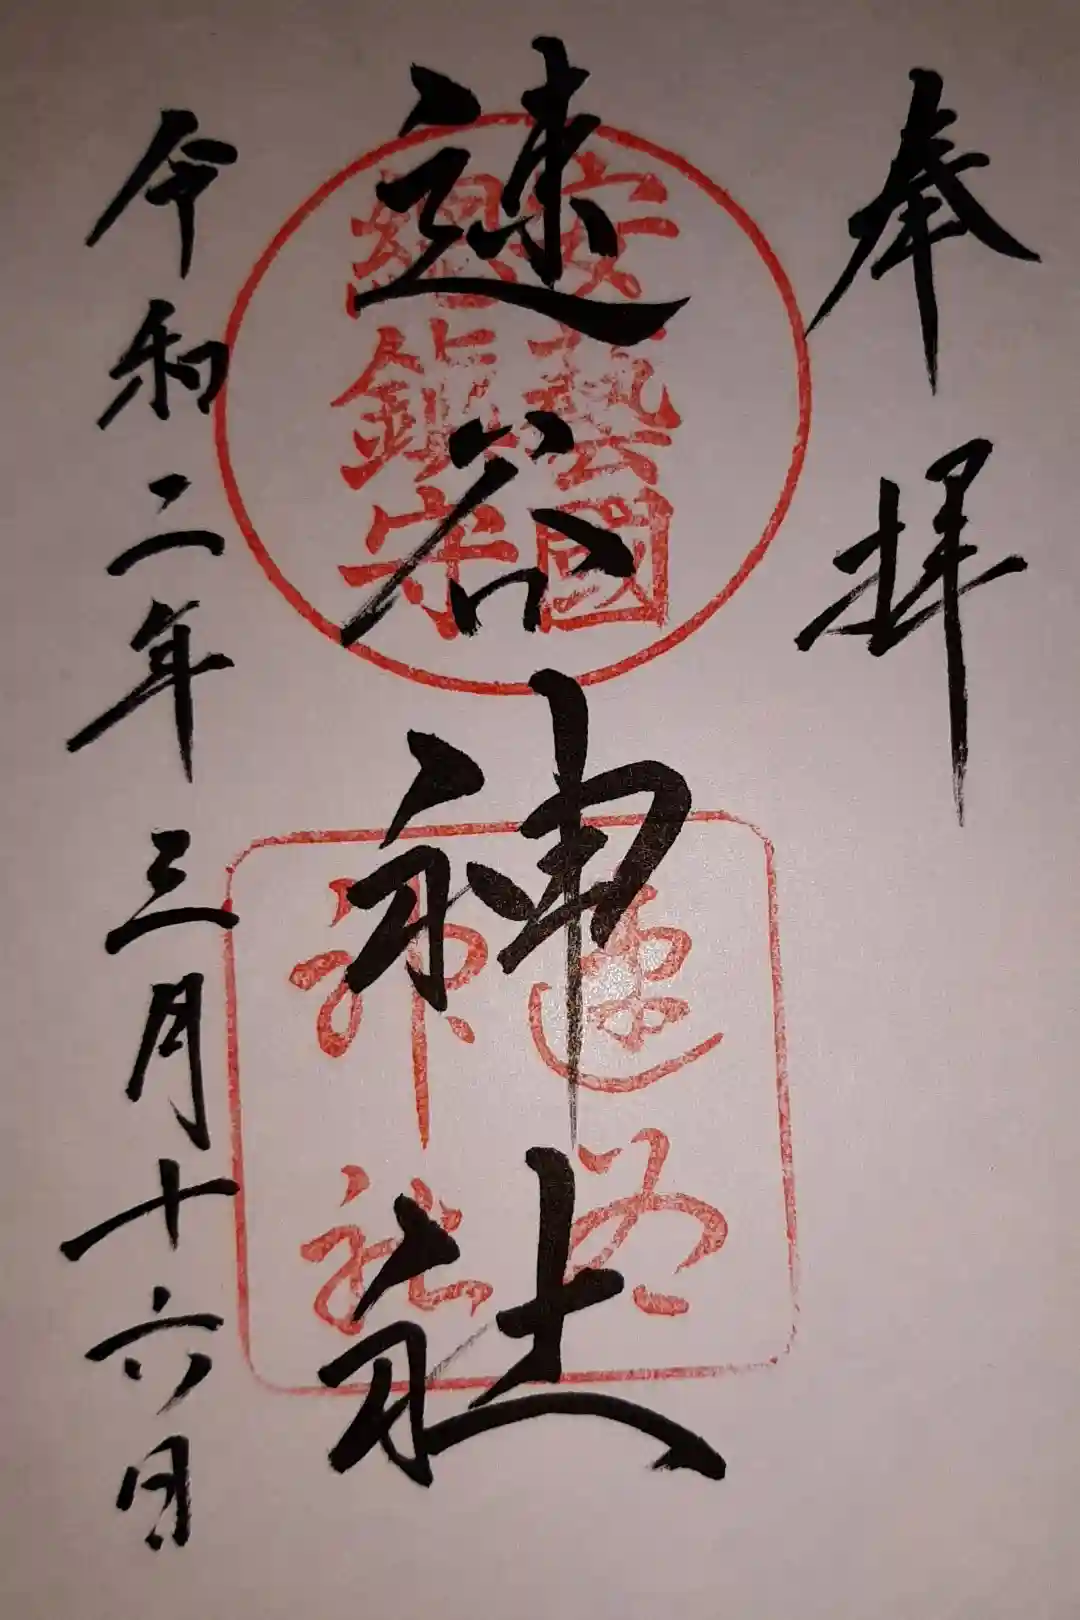 奉拝
速谷神社
安藝國
総鎮守
速谷
神社
令和二年三月十六日